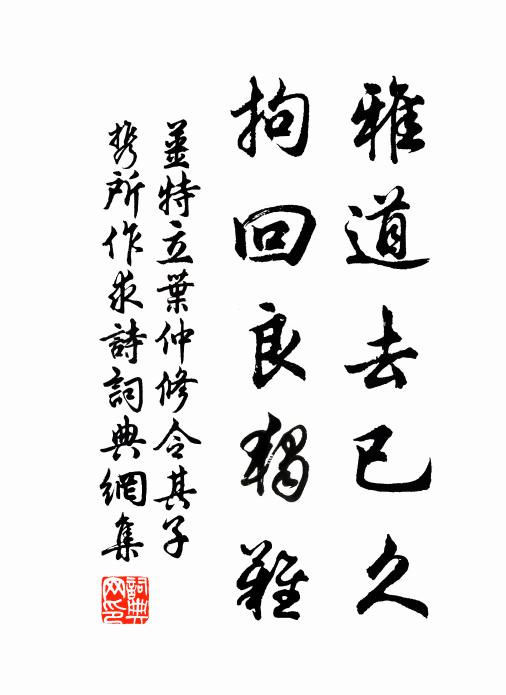 雅道去已久
拘回良獨難
姜特立葉仲修令其子
携所作求詩詞典網集
詞典網印